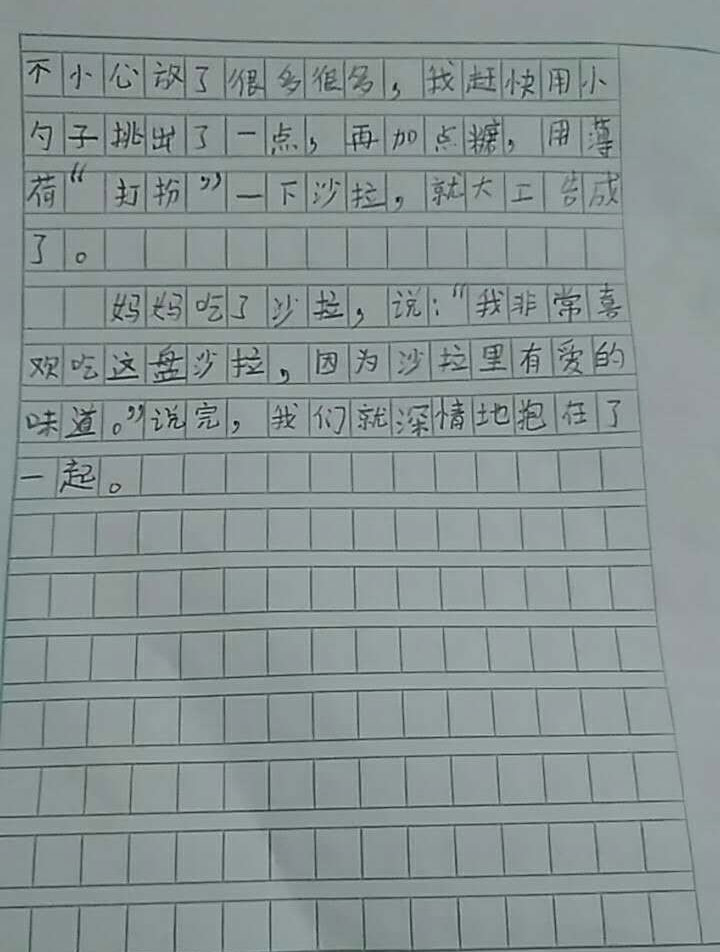 不小心放了很多很多，我赶快用小
勺子挑出了一点，再加点糖，用薄
荷“打扮”一下沙拉，就大工告成
了。
妈妈吃了沙拉，说：“我非常喜
欢吃这盘沙拉，因为沙拉里有爱的
味道。”说完，我们就深情地抱在了
一起。